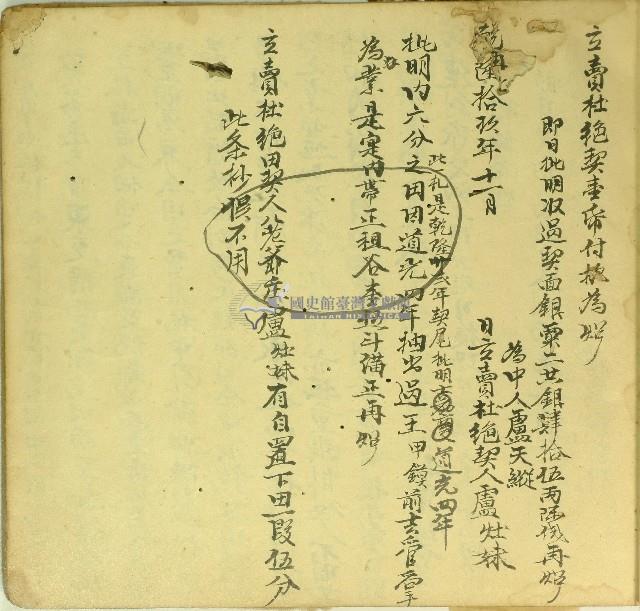 立賣杜絕契壹帋付執為炤
即日批明收過契面銀粟二共銀肆拾伍兩除伐再炤
為中人盧天縱
乾隆陸拾玖年十一月 日立賣杜絕契人盧灶妹
此札是乾隆卅弍年契尾批明 道光四年
批明內六分之田因道光四年抽出過王甲鏌前去管
為業是定內帶正租谷 斗滿正再炤
立賣杜絕田契人 爺庄盧灶妹有自置下田一段伍分
此条抄悞不用
國史館臺灣文獻館
TAIWAN HISTORICA